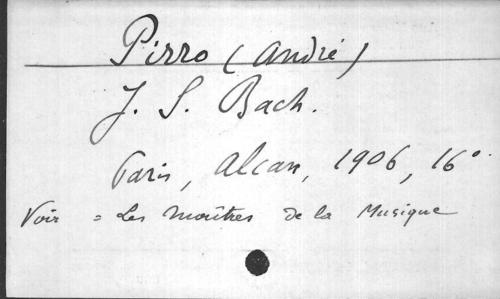 Pirro (André)
J. S. Bach.
Paris, Alcan, 1906, 16°.
Voir = Les Maîtres de la Musique